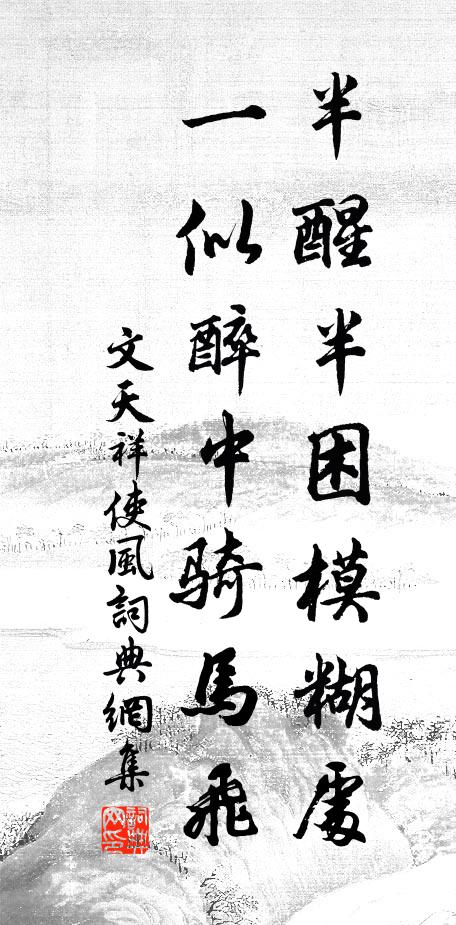 半醒半困模糊處
一似醉中騎馬飛
文天祥使風詞典網集